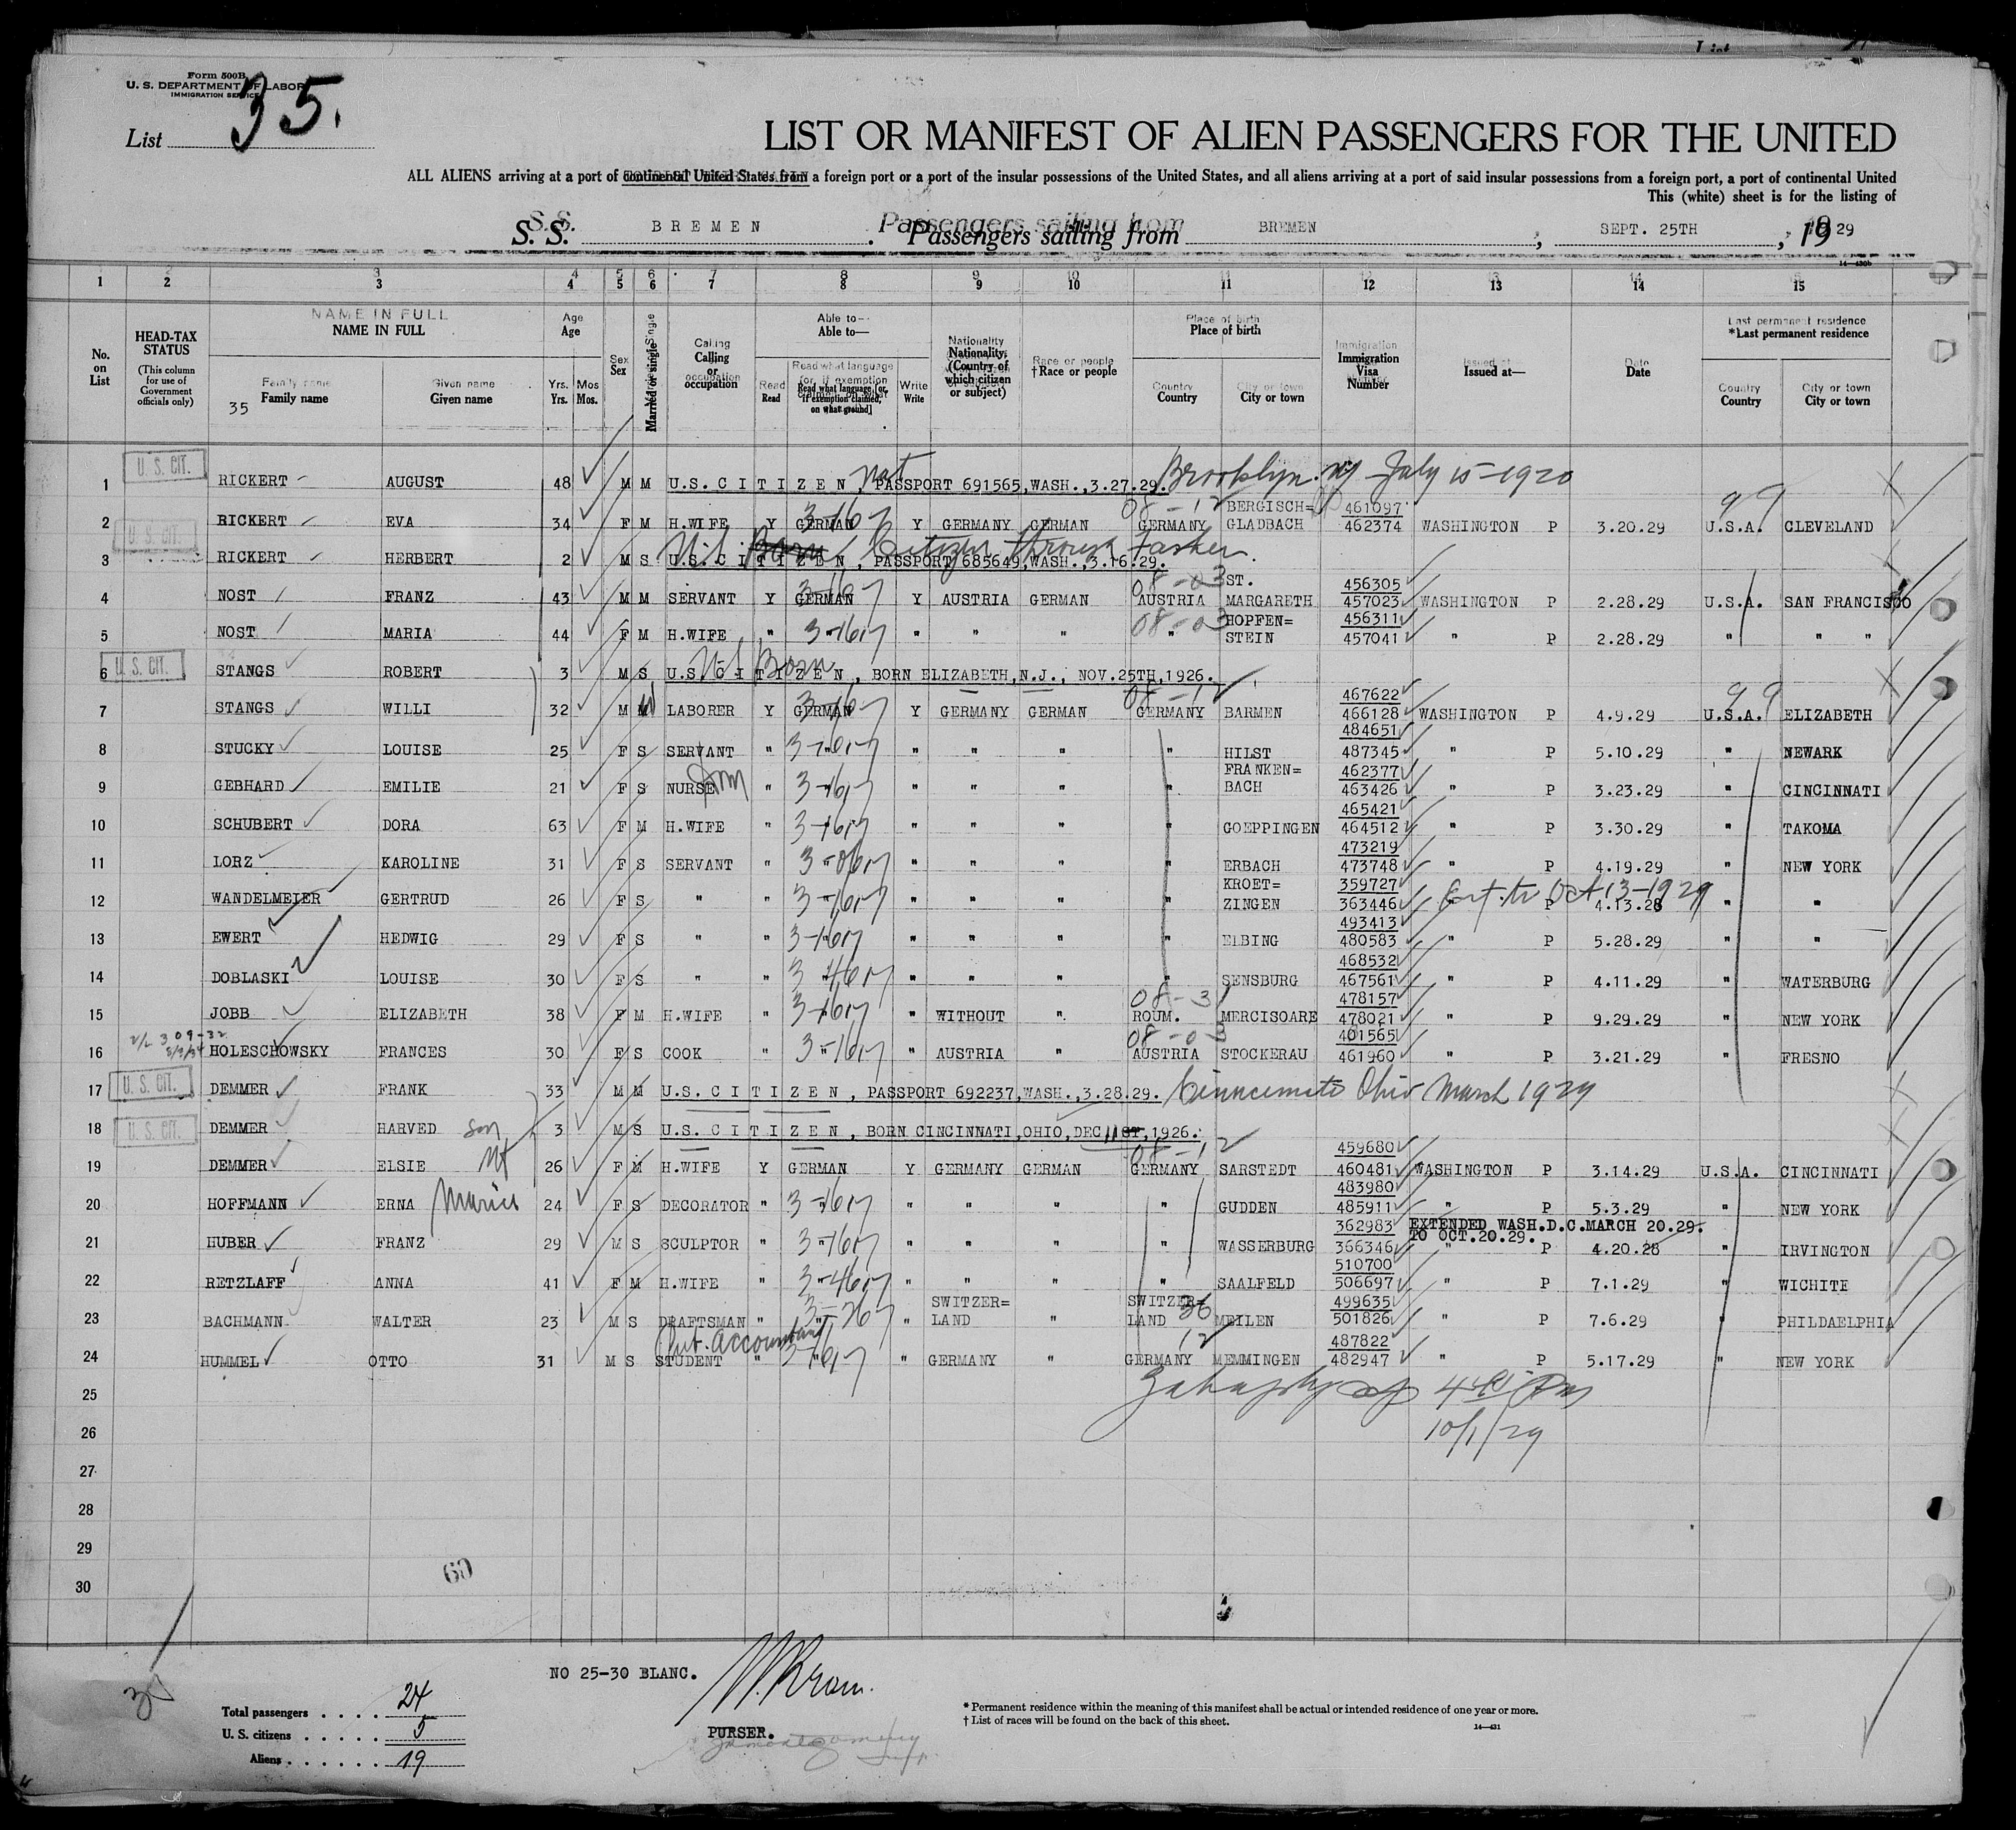 Form 500B
U. S. DEPARTMENT OF LABOR
IMMIGRATION SERVICE
List 35.
LIST OR MANIFEST OF ALIEN PASSENGERS FOR THE UNITED
ALL ALIENS arriving at a port of continental United States from a foreign port or a port of the insular possessions of the United States, and all aliens arriving at a port of said insular possessions from a foreign port, a port of continental United
This (white) sheet is for the listing of
S. S. BREMEN. Passengers sailing from BREMEN, SEPT. 25TH, 19 29
14—430b
1 2 3 4 5 6 7 8 9 10 11 12 13 14 15
No. on List
HEAD-TAX STATUS (This column for use of Government officials only)
NAME IN FULL
Family name Given name
35
Age
Yrs. Mos.
Sex
Married or single
Calling or occupation
Able to—
Read Read what language [or, if exemption claimed, on what ground] Write
Nationality. (Country of which citizen or subject)
†Race or people
Place of birth
Country City or town
Immigration Visa Number
Issued at—
Date
*Last permanent residence
Country City or town
1 U. S. CIT. RICKERT AUGUST 48 M M U.S. C I T I Z E N, nat PASSPORT 691565,WASH.,3.27.29. Brooklyn. NY July 15-1920
2 RICKERT EVA 34 F M H.WIFE Y GERMAN Y GERMANY GERMAN 08-12 GERMANY BERGISCH= GLADBACH 461097 462374 WASHINGTON P 3.20.29 99 U.S.A. CLEVELAND
3 U. S. CIT. RICKERT HERBERT 2 M S U.S. Born Citizen through Father U.S. C I T I Z E N, PASSPORT 685649,WASH.,3.16.29.
4 NOST FRANZ 43 M M SERVANT Y GERMAN Y AUSTRIA GERMAN 08-03 AUSTRIA ST. MARGARETH 456305 457023 WASHINGTON P 2.28.29 U.S.A. SAN FRANCISCO
5 NOST MARIA 44 F M H.WIFE " " " " " 08-03 " HOPFEN= STEIN 456311 457041 " P 2.28.29 " " "
6 U. S. CIT. STANGS ROBERT 3 M S US Born U.S. C I T I Z E N, BORN ELIZABETH,N.J., NOV.25TH,1926.
7 STANGS WILLI 32 M M W LABORER Y GERMAN Y GERMANY GERMAN 08-12 GERMANY BARMEN 467622 466128 WASHINGTON P 4.9.29 99 U.S.A. ELIZABETH
8 STUCKY LOUISE 25 F S SERVANT " " " " " " HILST 484651 487345 " P 5.10.29 " NEWARK
9 GEBHARD EMILIE 21 F S NURSE Dom " " " " " " FRANKEN= BACH 462377 463426 " P 3.23.29 " CINCINNATI
10 SCHUBERT DORA 63 F M H.WIFE " " " " " " GOEPPINGEN 465421 464512 " P 3.30.29 " TAKOMA
11 LORZ KAROLINE 31 F S SERVANT " " " " " " ERBACH 473219 473748 " P 4.19.29 " NEW YORK
12 WANDELMEIER GERTRUD 26 F S " " " " " " " KROET= ZINGEN 359727 363446 Ext. to Oct 13-1929 P 4.13.28 " "
13 EWERT HEDWIG 29 F S " " " " " " " ELBING 493413 480583 " P 5.28.29 " "
14 DOBLASKI LOUISE 30 F S " " " " " " " SENSBURG 468532 467561 " P 4.11.29 " WATERBURG
15 JOBB ELIZABETH 38 F M H.WIFE " " " WITHOUT " 08-31 ROUM. MERCISOARE 478157 478021 " P 9.29.29 " NEW YORK
16 HOLESCHOWSKY FRANCES 30 F S COOK " " " AUSTRIA " 08-03 AUSTRIA STOCKERAU 401565 461960 " P 3.21.29 " FRESNO
17 U. S. CIT. DEMMER FRANK 33 M M U.S. C I T I Z E N, PASSPORT 692237,WASH.,3.28.29. Cinncinnati Ohio March 1929
18 U. S. CIT. DEMMER HARVED son 3 M S U.S. C I T I Z E N, BORN CINCINNATI,OHIO,DEC 11 ST,1926.
19 DEMMER ELSIE 26 F M H.WIFE Y GERMAN Y GERMANY GERMAN 08-12 GERMANY SARSTEDT 459680 460481 WASHINGTON P 3.14.29 U.S.A. CINCINNATI
20 HOFFMANN ERNA Marie 24 F S DECORATOR " " " " " " GUDDEN 483980 485911 " P 5.3.29 " NEW YORK
21 HUBER FRANZ 29 M S SCULPTOR " " " " " " WASSERBURG 362983 366346 EXTENDED WASH.D.C.MARCH 20.29. TO OCT.20.29. P 4.20.28 " IRVINGTON
22 RETZLAFF ANNA 41 F M H.WIFE " " " " " " SAALFELD 510700 506697 " P 7.1.29 " WICHITE
23 BACHMANN WALTER 23 M S DRAFTSMAN " " " SWITZER= LAND " SWITZER= LAND 36 MEILEN 499635 501826 " P 7.6.29 " PHILDAELPHIA
24 HUMMEL OTTO 31 M S Pub. Accountant STUDENT " " " GERMANY " 12 GERMANY MEMMINGEN 487822 482947 " P 5.17.29 " NEW YORK
25
26 10/1/29
27
28
29
30
60
NO 25-30 BLANC.
PURSER.
Total passengers . . . . 24
U. S. citizens . . . . . 5
Aliens . . . . . . 19
* Permanent residence within the meaning of this manifest shall be actual or intended residence of one year or more.
† List of races will be found on the back of this sheet.
14—431